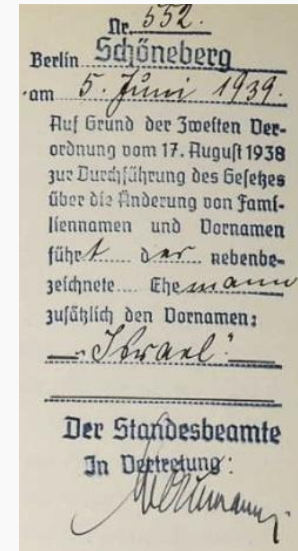 Nr. 552.
Berlin Schöneberg
am 5. Juni 1939.
Auf Grund der Zweiten Ver-
ordnung vom 17. August 1938
zur Durchführung des Gesetzes
über die Änderung von Fami-
liennamen und Vornamen
führt der nebenbe-
zeichnete Ehemann
zusätzlich den Vornamen:
"Israel."
Der Standesbeamte
In Vertretung: